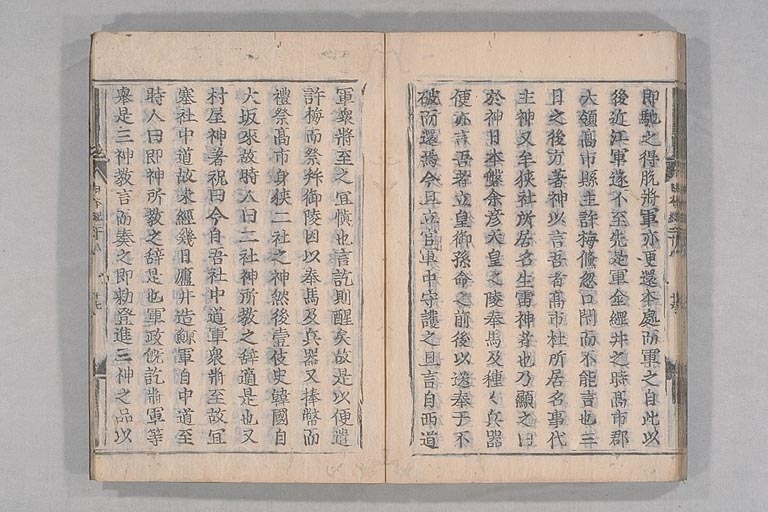 即馳之得脱將軍亦更還本處而軍之自此以
後近江軍遂不至先是軍金綱井之時高市郡
大領高市縣主許梅儵忽口閇而不能言也三
日之後方著神以言吾者高市社所居名事代
主神又牟狹社所居名生雷神者也乃顯之曰
於神日本磐余彦天皇之陵奉馬及種〻兵器
便亦言吾者立皇御孫命之前後以送奉于不
破而還焉今且立官軍中守護之且言自西道
軍衆將至之宜愼也言訖則醒矣故是以便遣
許梅而祭拜御陵因以奉馬及兵器又捧幣而
禮祭高市身狹二社之神然後壹伎史韓國自
大坂來故時人曰二社神所教之辭適是也又
村屋神著祝曰今自吾社中道軍衆將至故宜
塞社中道故未經幾日廬井造鯨軍自中道至
時人曰即神所教之辭是也軍政既訖將軍等
舉是三神教言而奏之即勅登進三神之品以